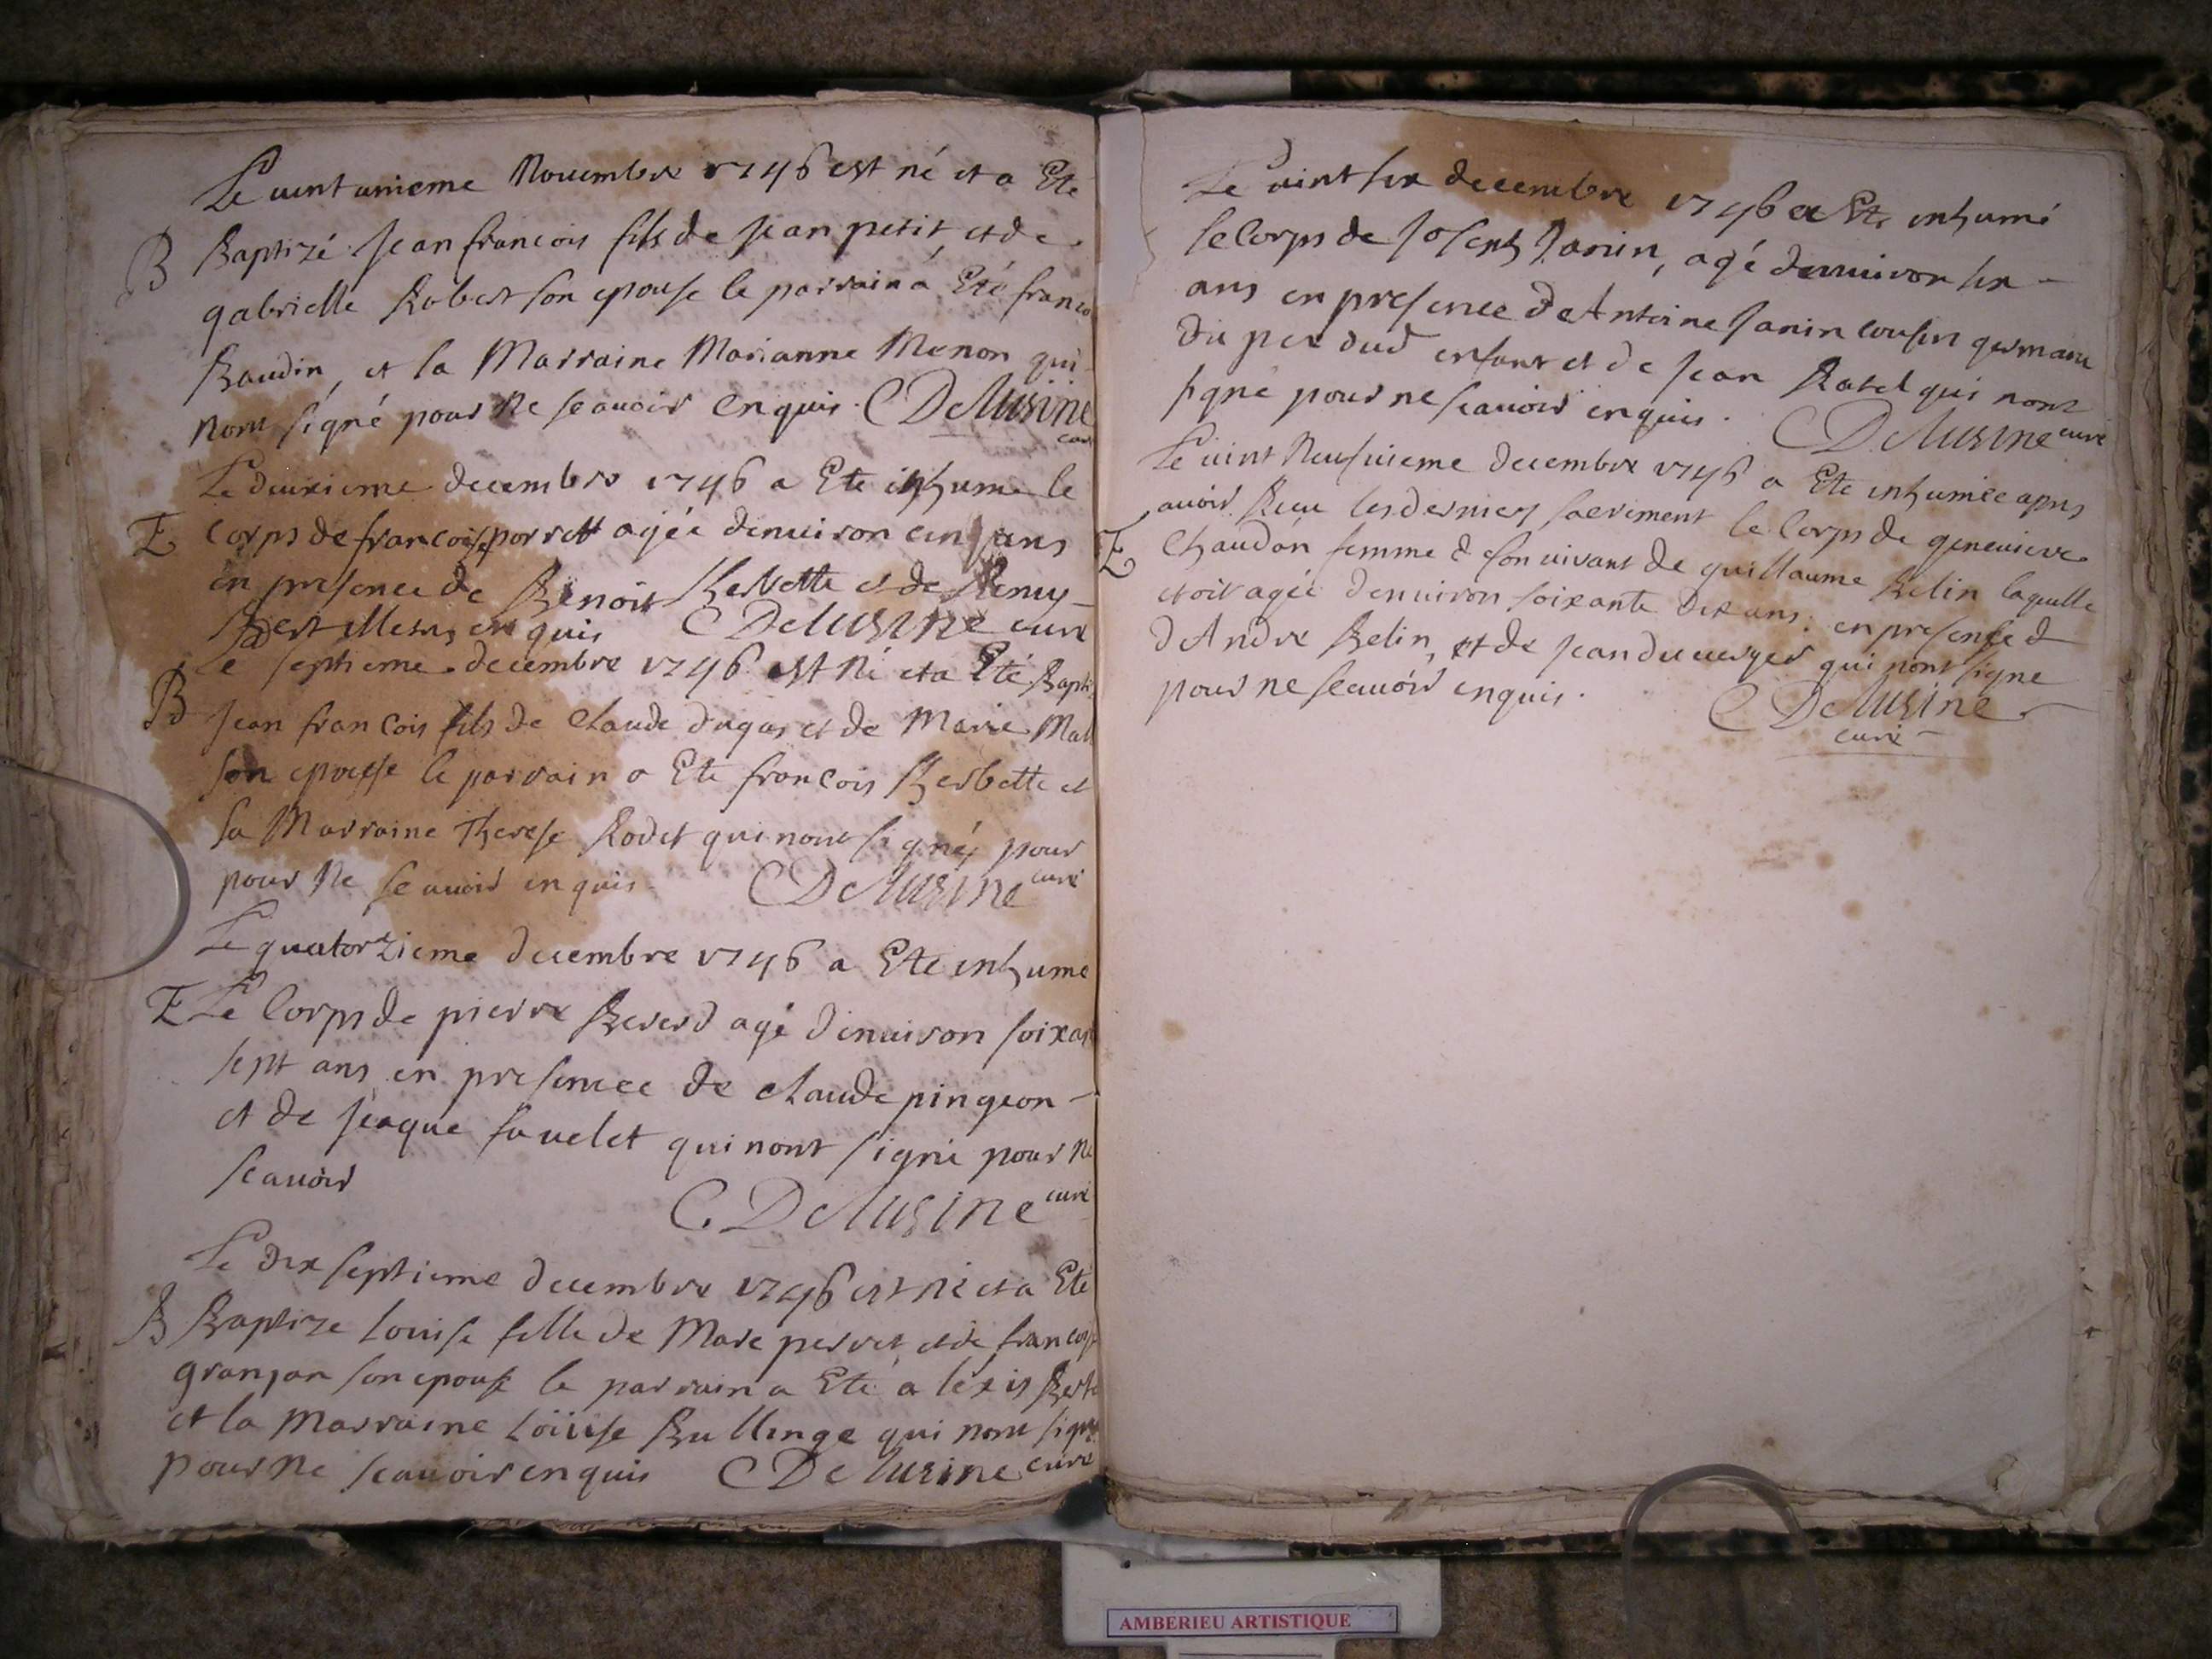 Le uint unieme Nouembre 1746 est né et a Eté
B Baptizé Jean francois fils de Jean petit, et de
gabrielle Robert son epouse le parrain a Eté franco
Baudin, et la Marraine Marianne Menon qui
nont signé pour Ne scauoir Enquis. C Delusine
curé
Le deuxieme decembre 1746 a Ete inhume le
E Corps de francoise porrett agée denuiron cinq ans
en presence de Benoit Herbette et de Remy
enquis C Delusine curé
Le septieme decembre 1746 est Né et a Eté Bapti
B Jean francois fils de Claude dugas et de Marie Mall
son epouse le parrain a Ete francois Herbette et
la Marraine Therese Rodet qui nont signéz pour
pour Ne scauoir enquis. C Delusine curé
Le quatorzieme decembre 1746 a Ete inhume
E Le Corps de pierre Rererd agé denuiron soixan
sept ans en presencee de claude pingeon
et de jeaque fauelet qui nont signé pour Ne
scauoir C. Delusine curé
Le dix septieme decembre 1746 est né et a Eté
B Baptize Louise fille de Marc perret, et de francois
granjan son epouse le parrain a Eté aléxis Berte
et la Marraine Loüise Bullinge qui nont signé
pour Ne scauoir enquis C Delusine curé
Le uint six decembre 1746 a Ete inhumé
le Corps de Joseph Janin, agé denuiron six
ans en presence de Antoine Janin cousin germain
du per dud enfant et de jean Ratel qui nont
signé pour ne scauoir enquis. C Delusine curé
Le uint Neufuieme decembre 1746 a Ete inhumée apres
auoir Receu les derniers sacrement le Corps de geneuieue
E Chaudon femme de son uiuant de guillaume Belin laquelle
etoit agée denuiron soixante dix ans. en presence d
dAndre Belin, et de jean duuerger qui nont signe
pour ne scauoir enquis. C Delusine
curé
AMBERIEU ARTISTIQUE